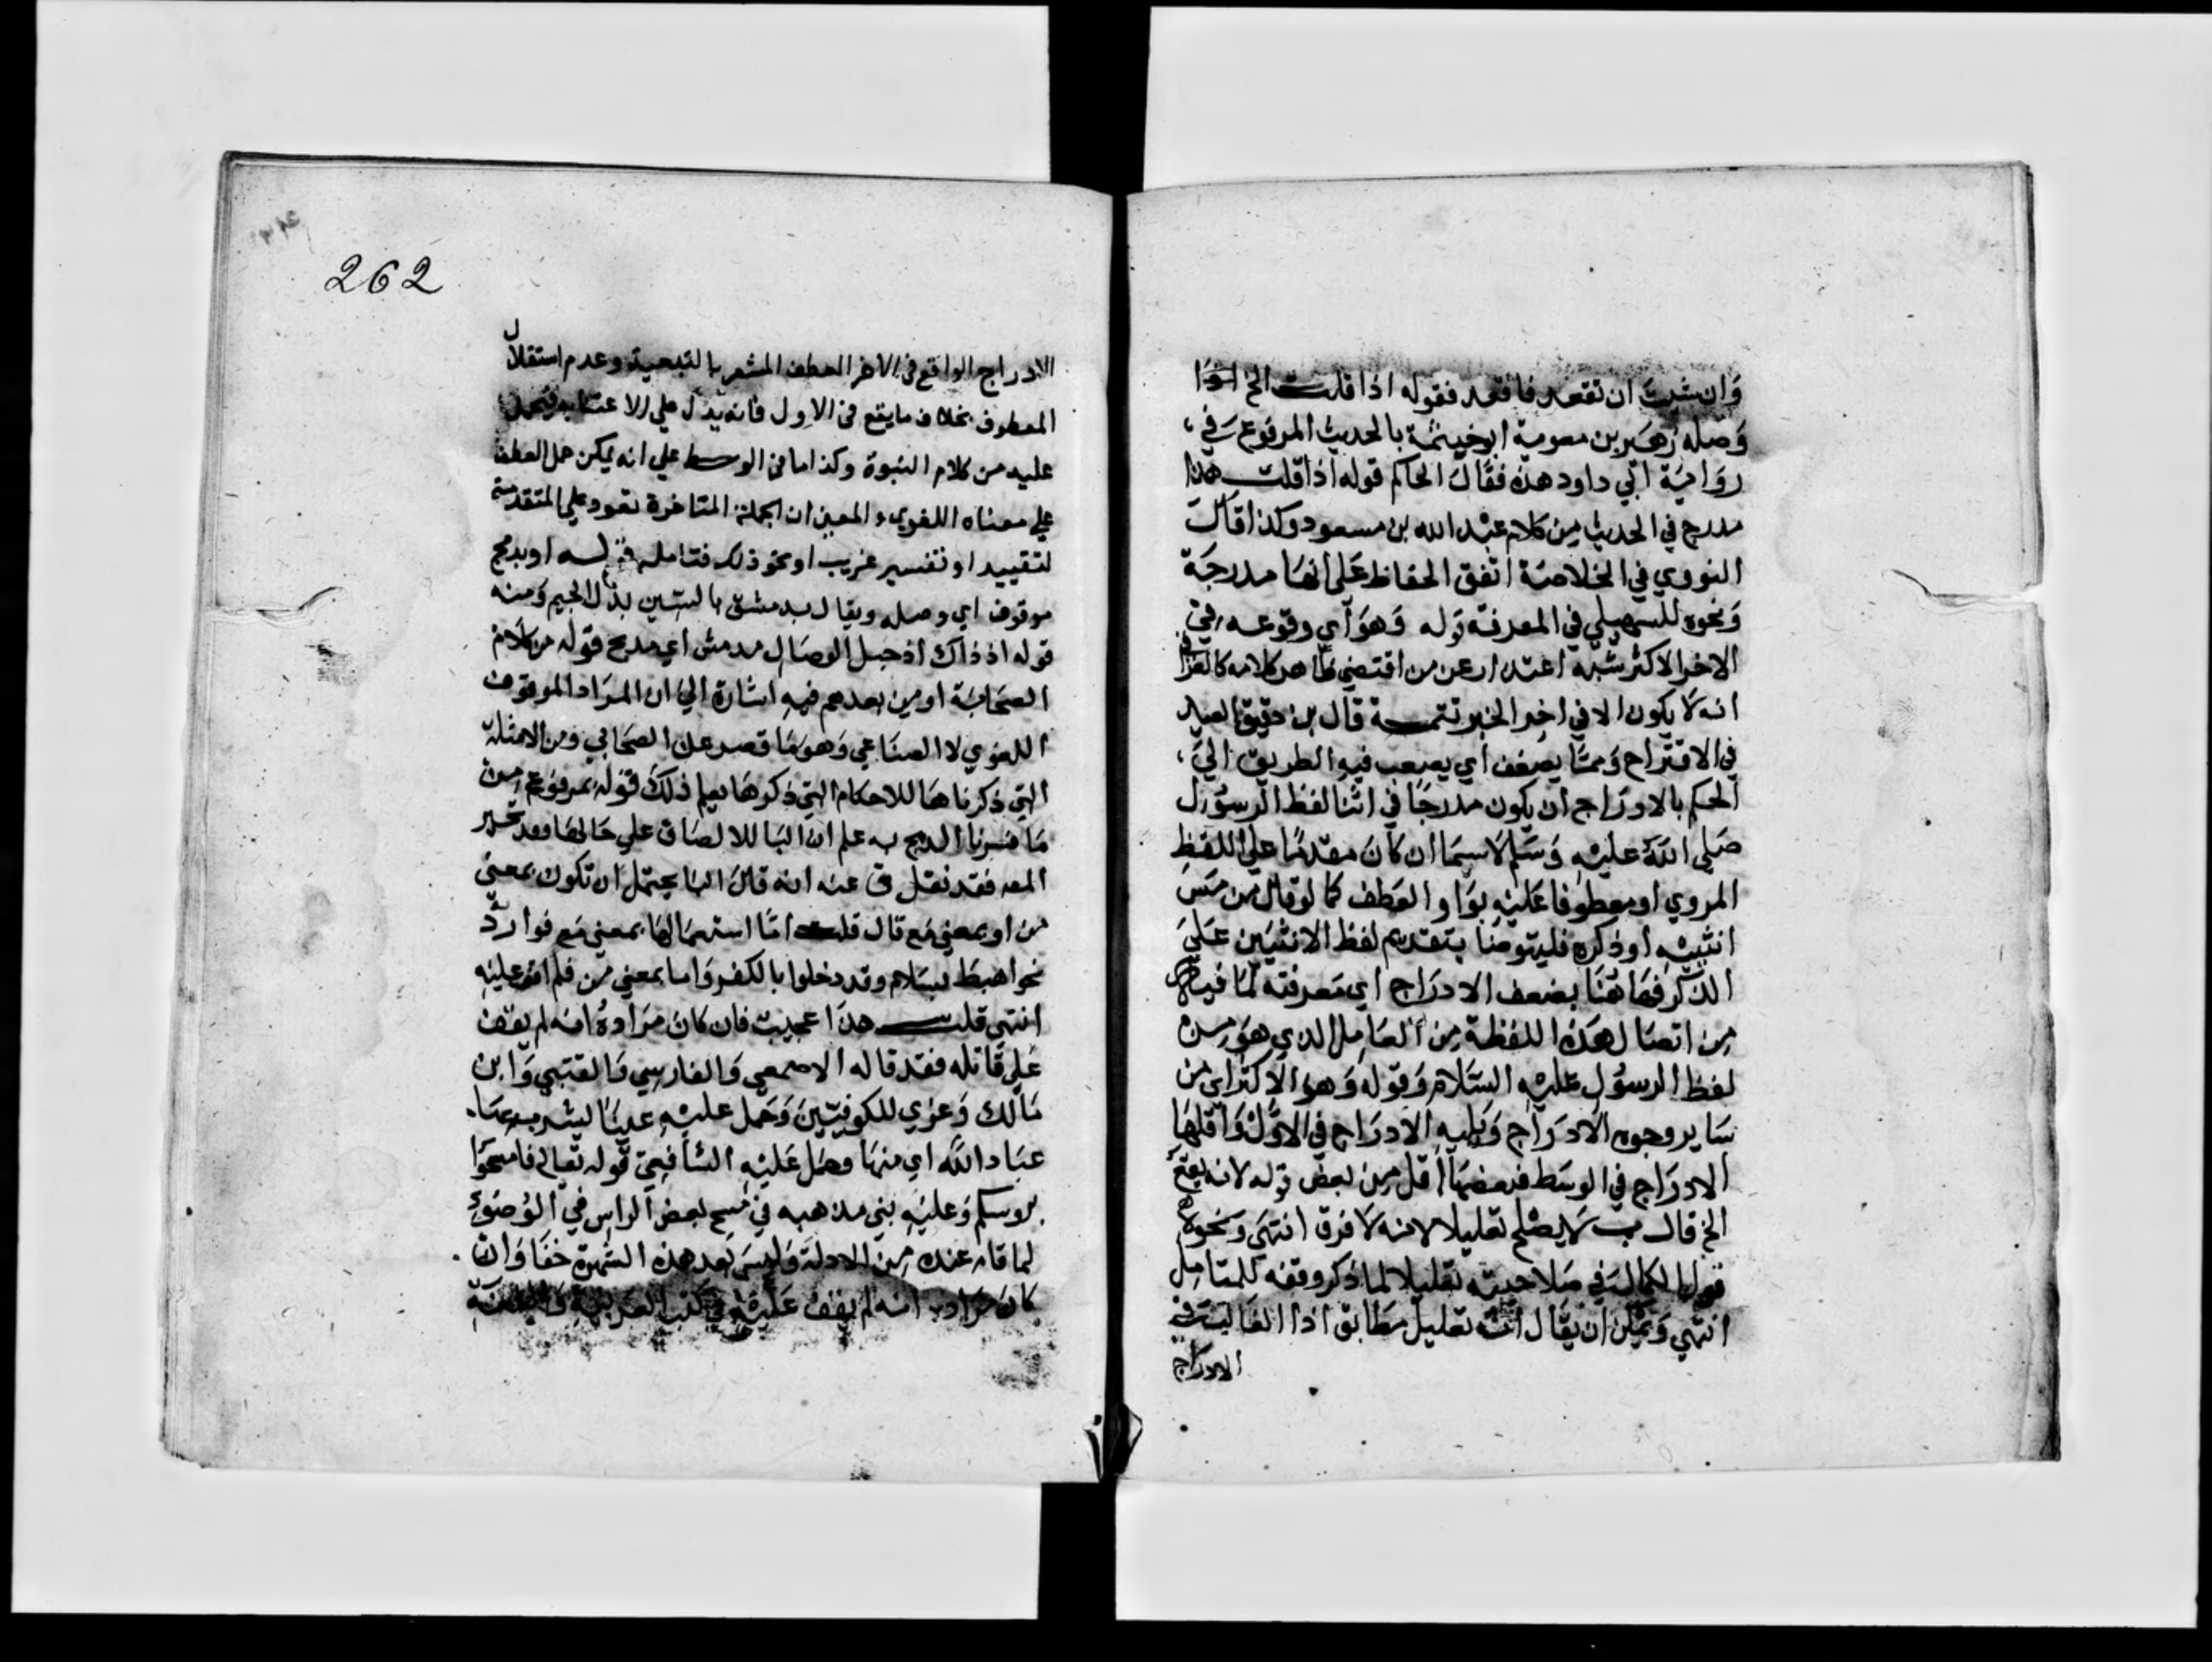 وان شئت ان تقعد فاقعد فقوله اذا قلت الخ
وصله زهير بن معوية ابو خيثمة بالحديث المرفوع في
رواية ابي داود هذه فقال الحاكم قوله اذا قلت هذا
مدرج في الحديث من كلام عبد الله بن مسعود وكذا قال
النووي في الخلاصة اتفق الحفاظ على انها مدرجة
ونحوه للبيهقي في المعرفة قوله وهو اي وقوعه في
الاخر الاكثر شبه اعتذار عن من اقتضى ظاهر كلامه كالعراقي
انه لا يكون الا في اخر الخبر تتمة قال بن دقيق العيد
في الاقتراح ومما يضعف اي يصعب فيه الطريق الى
الحكم بالادراج ان يكون مدرجا في اثنا لفظ الرسول
صلى الله عليه وسلم لا سيما ان كان مقدما على اللفظ
المروي او معطوفا عليه بواو العطف كما لو قال من مس
انثييه او ذكره فليتوضا بتقديم لفظ الانثيين على
الذكر فهاهنا يضعف الادراج اي معرفته لما فيه
من اتصال هذه اللفظة من العامل الذي هو من
لفظ الرسول عليه السلام وقوله وهو الاكثر اي من
ساير وجوه الادراج ويليه الادراج في الاول واقلها
الادراج في الوسط فبعضها اقل من بعض قوله لانه يقع
الخ قال ب لا يصلح تعليلا لانه لا فرق انتهى ونحوه
قول الكمال في صلاحيته تعليلا لما ذكر وقفه للمتامل
انتهي ويمكن ان يقال انه تعليل مطابق اذ الغالب في
الادراج
262
الادراج الواقع في الاخر العطف المشعر بالتبعية وعدم استقلال
المعطوف بخلاف ما يقع في الاول فانه يدل على الاعتنا به
عليه من كلام النبوة وكذا ما في الوسط على انه يمكن حمل العطف
على معناه اللغوي والمعين ان الجملة المتاخرة تعود على المتقدمة
لتقييد او تفسير غريب او نحو ذلك فتامله قوله او بدمج
موقوف اي وصله ويقال بدمشق بالشين بدل الجيم ومنه
قوله اذ ذاك اذ حبل الوصال مدمش اي مدمج قوله من كلام
الصحابة او من بعدهم فيه اشارة الى ان المراد الموقوف
اللغوي لا الصناعي وهو ما قصر على الصحابي ومن الامثلة
التي ذكرناها للاحكام التي ذكرها يعلم ذلك قوله بمرفوع من
ما فسرنا الدمج به علم ان البا للالصاق على حالها وقد تحير
المعه فقد نقل ق عنه انه قال البا يحتمل ان تكون بمعنى
من او بمعنى مع قال قلت اما استعمالها بمعنى مع فوارد
نحو اهبط بسلام وقد دخلوا بالكفر واما بمعنى من فلم اقف عليه
انتهى قلت هذا عجيب فان كان مراده انه لم يقف
على قائله فقد قاله الاصمعي والفارسي والقتبي وابن
مالك وعزي للكوفيين وحمل عليه عينا يشرب بها
عباد الله اي منها وحمل عليه الشافعي قوله تعالى فامسحوا
بروسكم وعليه بنى مذهبه في مسح بعض الراس في الوضوء
لما قام عنده من الادلة وليس بعد هذه الشهرة خفا وان
كان مراده انه لم يقف عليه في كتب العربية